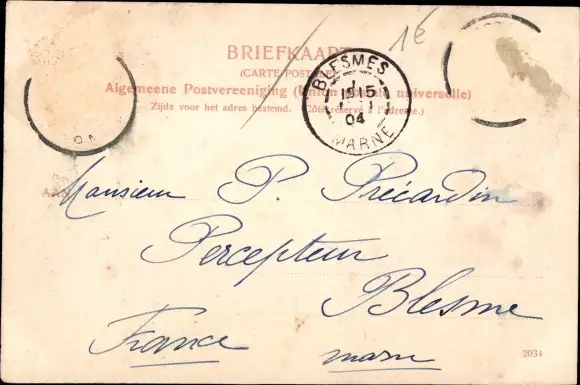 1€
BRIEFKAART
(CARTE POSTALE)
Algemeene Postvereeniging (Union postale universelle)
Zijde voor het adres bestemd. (Côté réservé à l'adresse.)
BLESMES
15
04
MARNE
AAN
Monsieur P. Précardin
Percepteur
Blesme
France
marne
2034